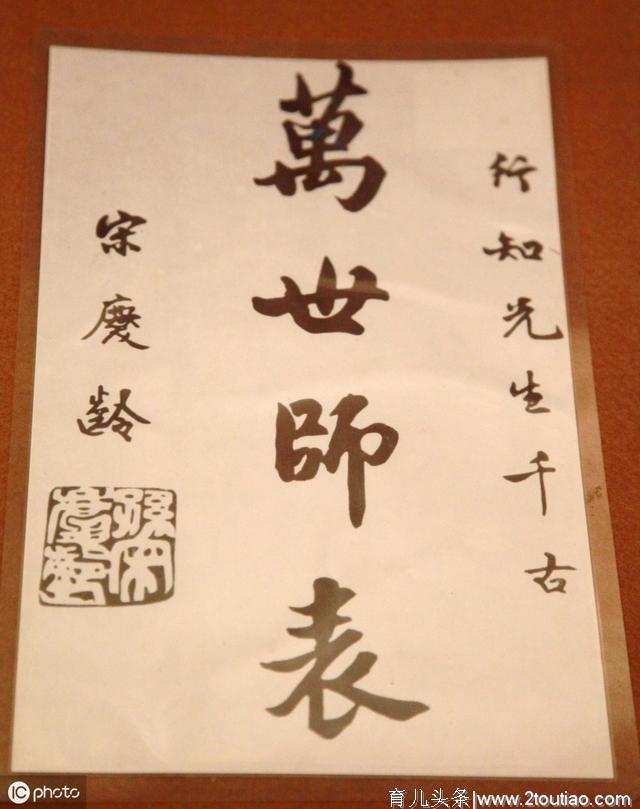 行知先生千古
萬世師表
宋慶齡
孫宋慶齡
IC photo
育儿头条|www.2toutiao.com